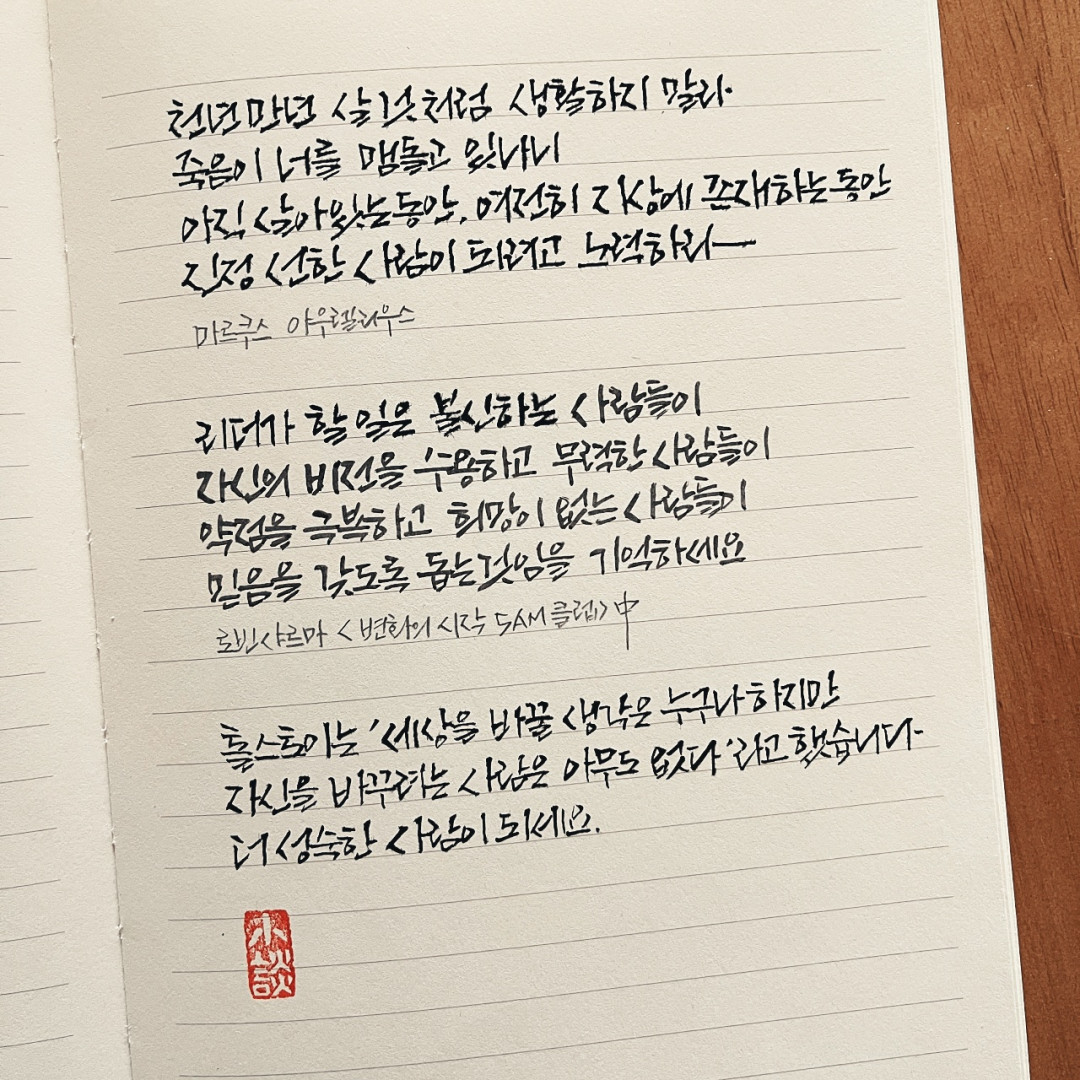 천년만년 살 것처럼 생활하지 말라.
죽음이 너를 맴돌고 있나니
아직 살아있는동안, 여전히 지상에 존재하는동안
진정 선한 사람이 되려고 노력하라—
마르쿠스 아우렐리우스
리더가 할 일은 불신하는 사람들이
자신의 비전을 수용하고 무력한 사람들이
약점을 극복하고 희망이 없는 사람들이
믿음을 갖도록 돕는것임을 기억하세요
로빈샤르마 <변화의 시작 5AM 클럽> 中
톨스토이는 '세상을 바꿀 생각은 누구나 하지만
자신을 바꾸려는 사람은 아무도 없다'라고 했습니다.
더 성숙한 사람이 되세요.
小談